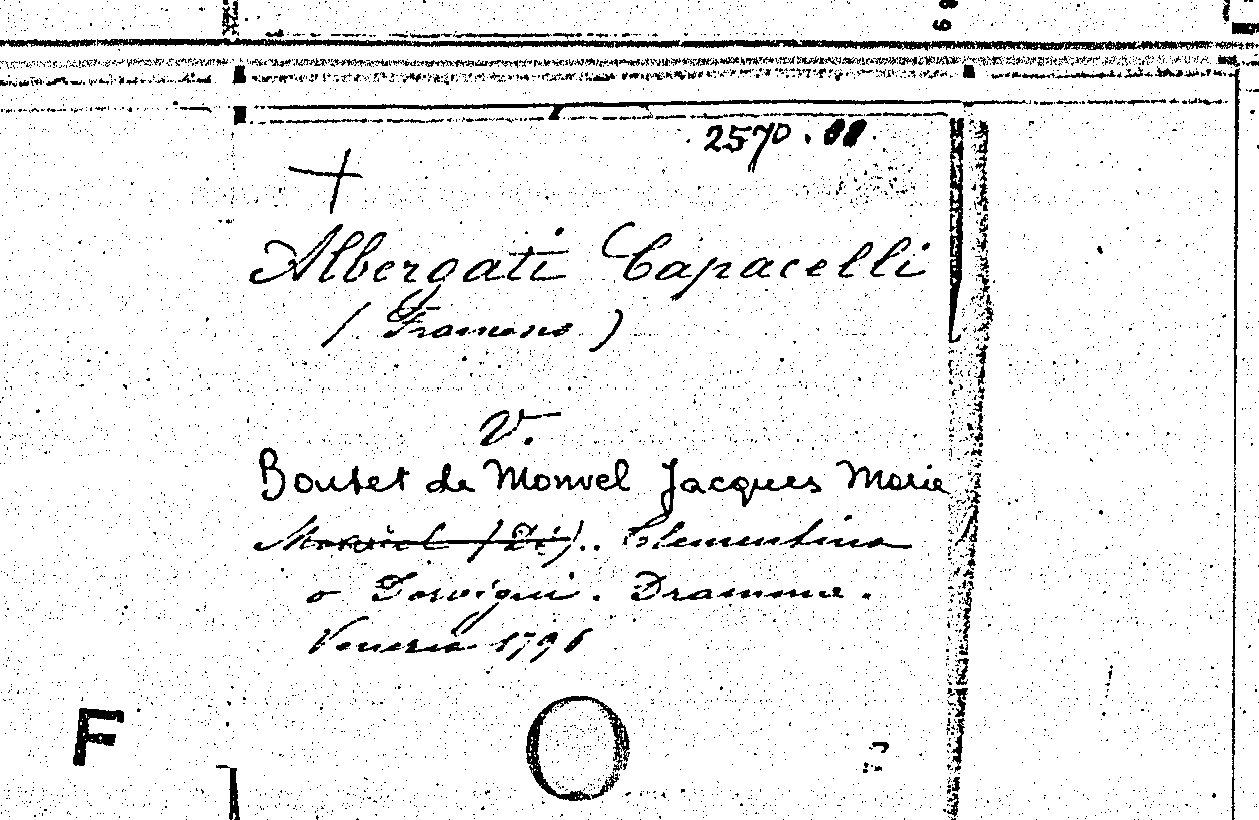 2570
Albergati Capacelli
v.
Boutet de Monvel Jacques Marie
Monvel (Di).. Clementina
o Dorvigni. Dramma.
Venezia 1796
F